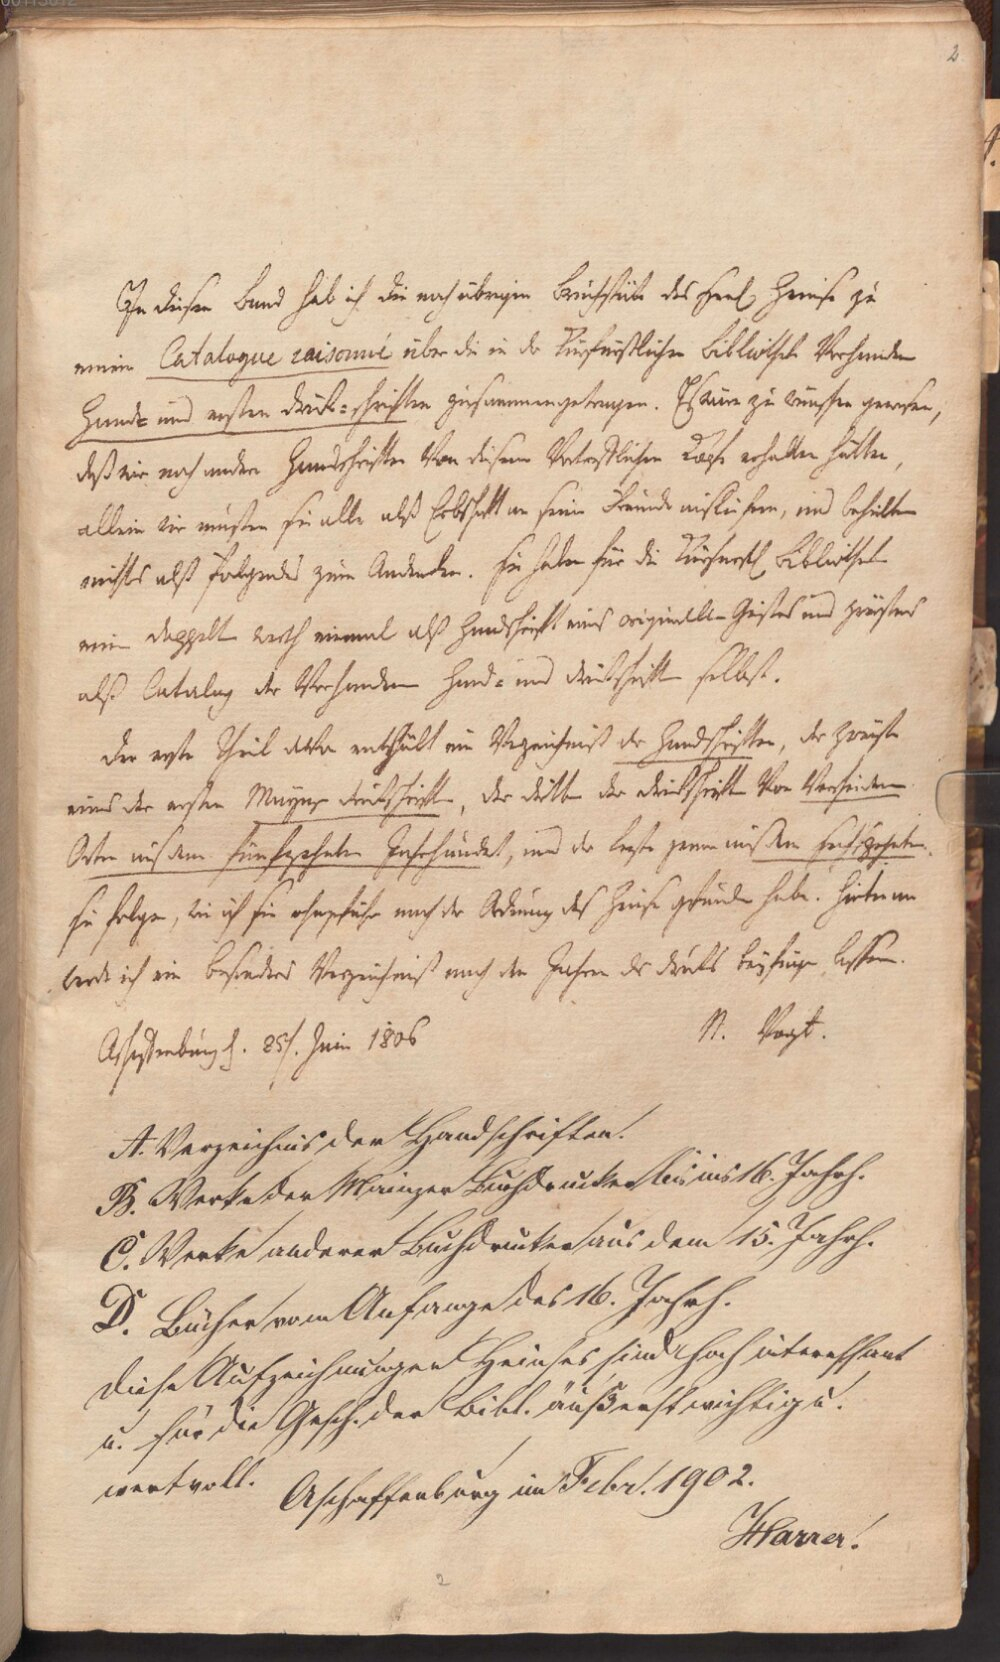 2
In diesen Band hab ich die noch übrigen Bruchstücke des sel. Heinse zu
einem Catalogue raisonné über die in der Kurfürstlichen Bibliothek Vorhanden
Hand- und ersten Druck-schriften zusammengetragen. Es wäre zu wünschen gewesen,
daß wir noch andere Handschriften Von diesem Vortrefflichen Kopfe erhalten hätten,
allein wir mußten sie alle alß Erbschaft an seine Freunde ausliefern, und behielten
nichts alß folgendes zum Andenken. Sie haben für die Kurfürstl Bibliothek
einen doppelten werth einmal alß Handschrift eines originellen Geistes und zweitens
alß Catalog der Vorhandenen Hand- und Druckschriften selbst.
Der erste Theil davon enthält ein Verzeichniß der Handschriften, der zweite
eines der ersten Maynzer Druckschriften, der dritte der Druckschriften Von Verschiedenen
Orten aus dem fünfzehnten Jahrhundert, und der letzte jenen aus dem sechszehnten.
Sie folgen, wie ich sie ohngefähr nach der Ordnung des Heinse gefunden habe. Hinten an
werde ich ein besonderes Verzeichniß nach den Jahren des Drucks beyfügen lassen.
Aschaffenburg d. 25t. Juni 1806 N. Vogt.
A. Verzeichnis der Handschriften.
B. Werke der Mainzer Buchdrucker bis ins 16. Jahrh.
C. Werke anderer Buchdrucker aus dem 15. Jahrh.
D. Bücher vom Anfange des 16. Jahrh.
Diese Aufzeichnungen Heinses sind hoch interessant
u. für die Gesch. der Bibl. äußerst wichtig u.
wertvoll. Aschaffenburg im Febr. 1902.
Harrer.
2